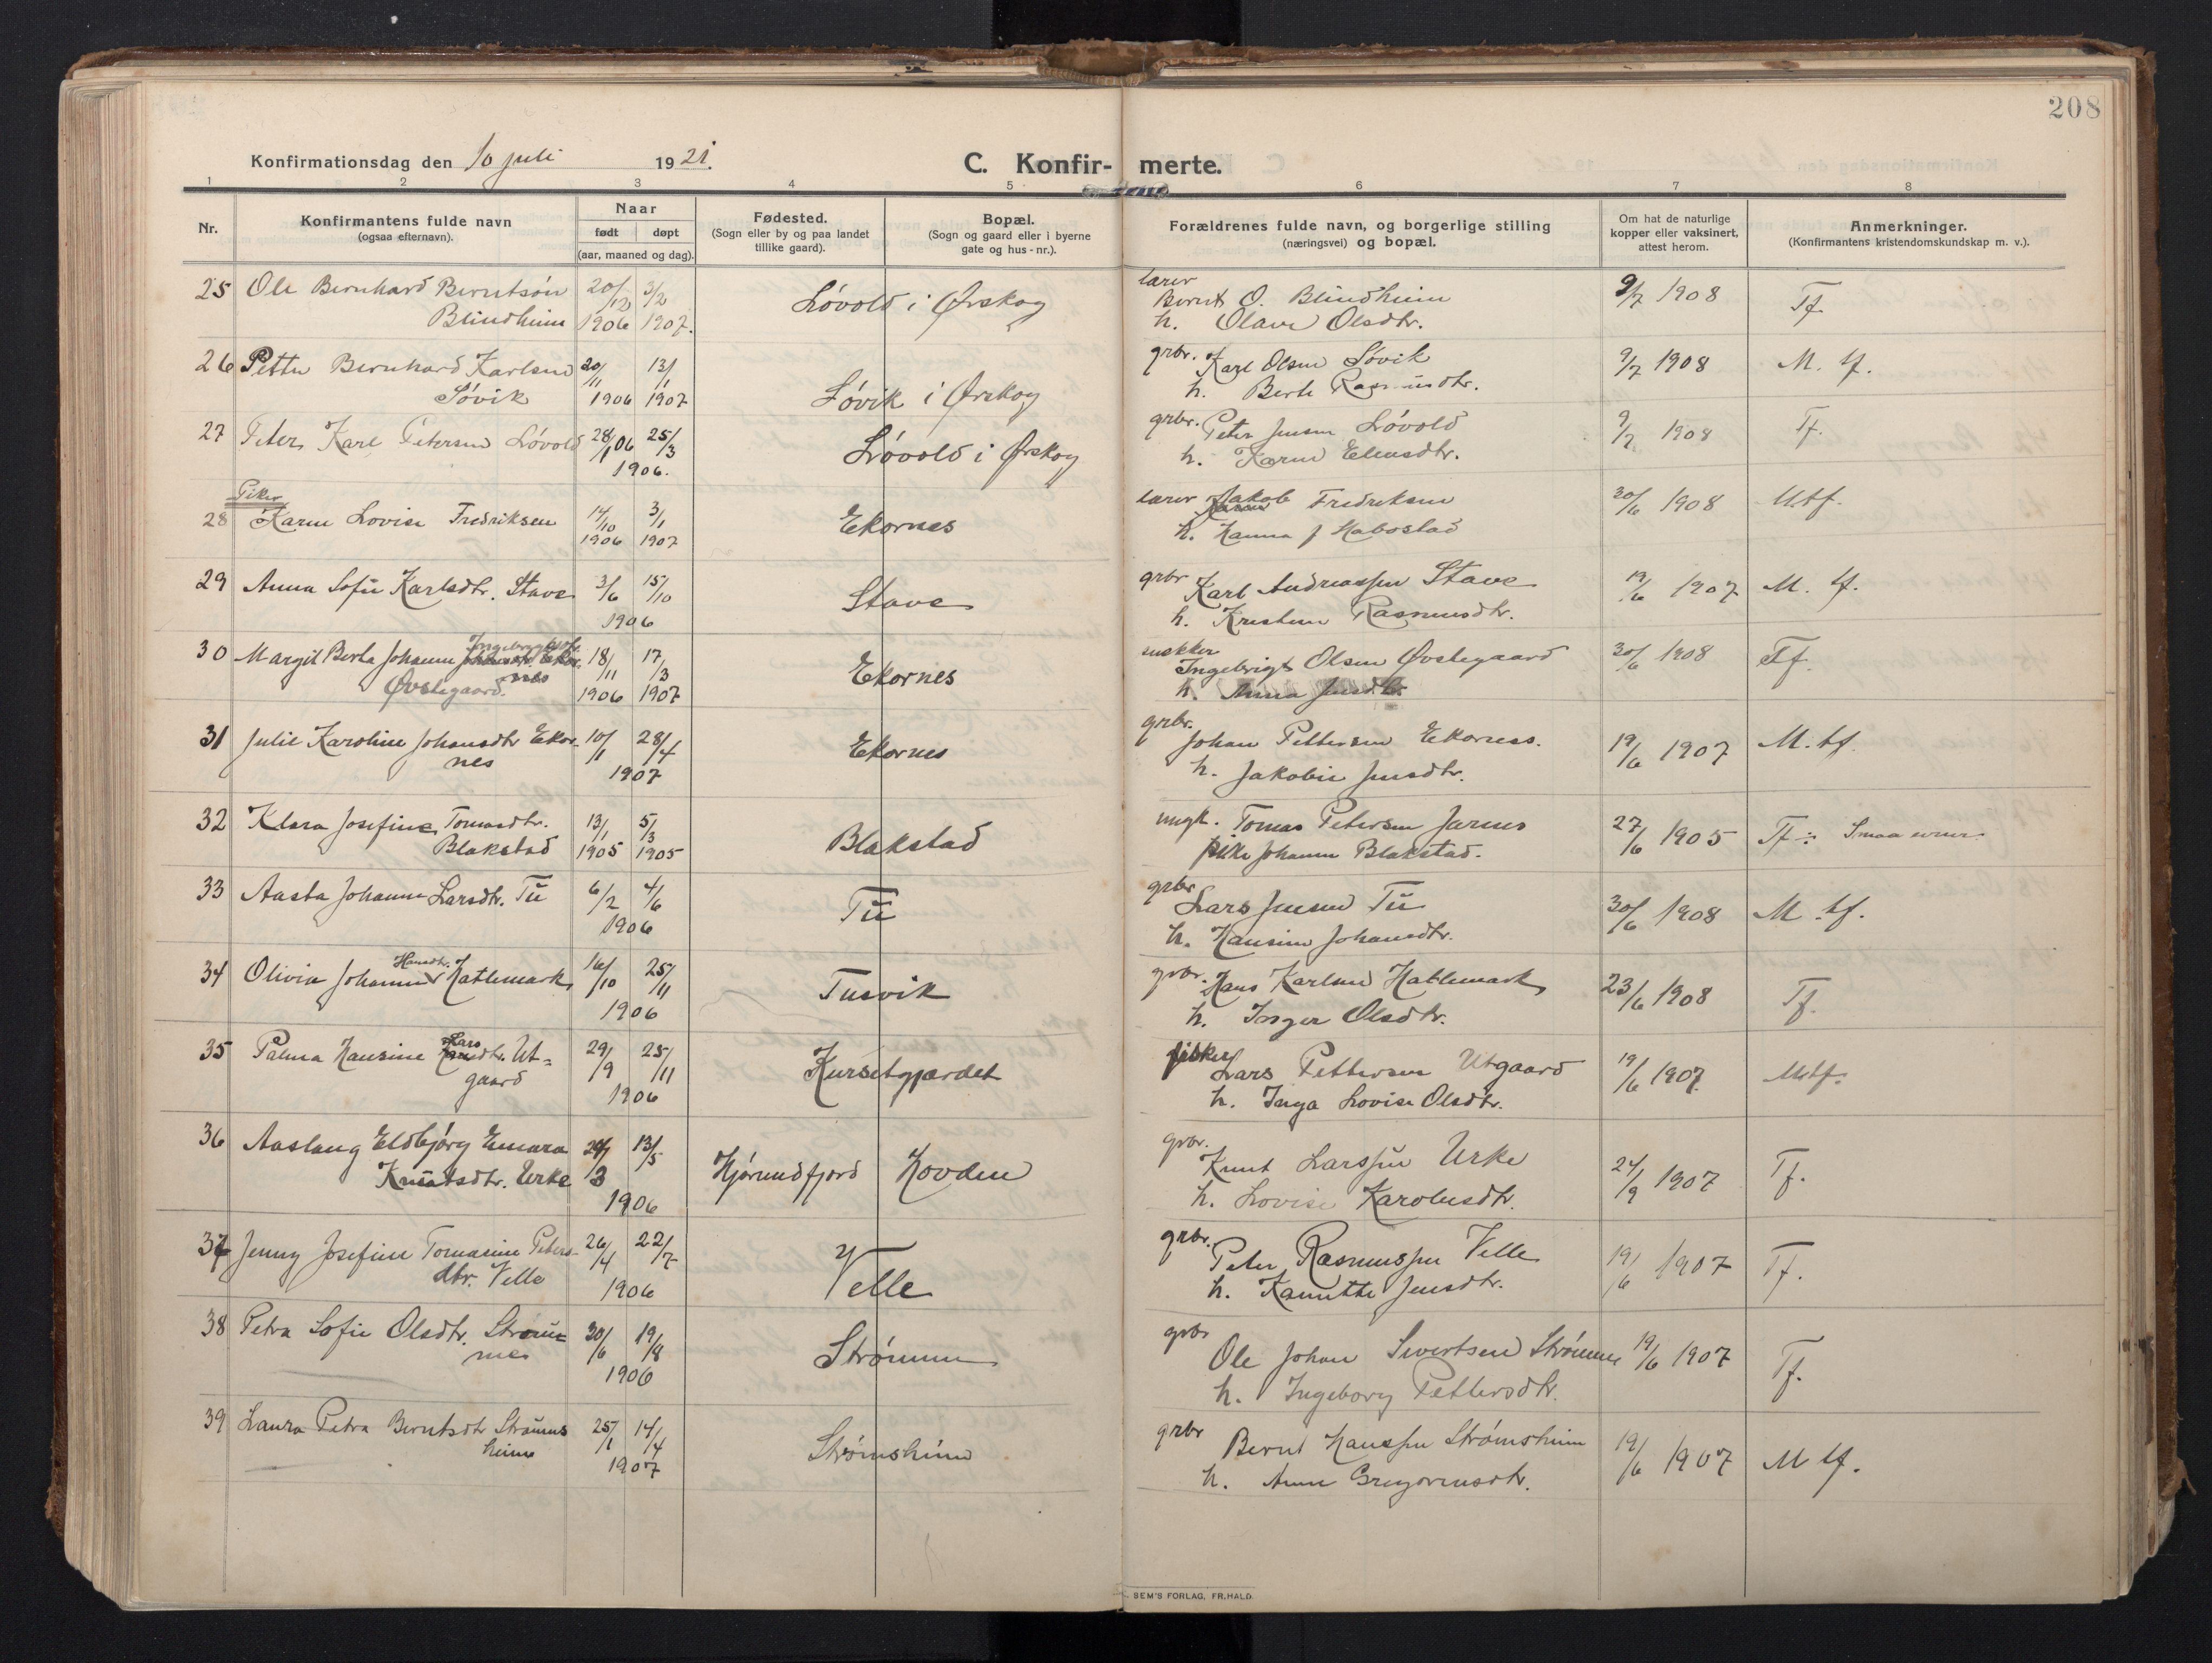 208
Konfirmationsdag den 10 juli 1921.
C. Konfir- merte.
1 2 3 4 5 6 7 8
Nr.
Konfirmantens fulde navn
(ogsaa efternavn).
Naar
født døpt
(aar, maaned og dag).
Fødested.
(Sogn eller by og paa landet
tillike gaard).
Bopæl.
(Sogn og gaard eller i byerne
gate og hus - nr.).
Forældrenes fulde navn, og borgerlige stilling
(næringsvei) og bopæl.
Om hat de naturlige
kopper eller vaksinert,
attest herom.
Anmerkninger.
(Konfirmantens kristendomskundskap m. v.).
25 Ole Bernhard Berntsøn 20/12 3/2 Løvold i Ørskog lærer 9/7 1908 Tf
Blindheim 1906 1907. Bernt O. Blindheim
h. Olave Olsdtr.
26 Petter Bernhard Karlsen 20/11 13/1 Løvik i Ørskog grbr. Karl Olsen Løvik 9/7 1908 M. tf.
Løvik 1906 1907 h. Berte Rasmusdtr.
27 Peter Karl Petersen Løvold 28/1 06 25/3 Løvold i Ørskog grbr. Peter Jensen Løvold 9/7 1908 Tf.
1906. h. Karen Eliasdtr.
Piker
28 Karen Lovise Fredriksen 14/10 3/1 Ekornes lærer Jakob Fredriksen 30/6 1908 Mtf.
1906 1907 h. Hanna f Habostad
29 Anna Sofie Karlsdtr. Stave 3/6 15/10 Stave grbr Karl Andreassen Stave 19/6 1907 M. tf.
1906 h. Kristine Rasmusdtr.
30 Margit Berta Johanne Ingebrigtsdtr. Ekor- 18/11 17/3 Ekornes snekker 30/6 1908 Tf.
nes
Øvstegaard. 1906 1907 Ingebrigt Olsen Øvstegaard
h. Anna Jensdtr.
31 Julie Karoline Johansdtr Ekor- 10/1 28/4 Ekornes grbr. Johan Pettersen Ekornes. 19/6 1907 M. tf.
nes 1907 h. Jakobie Jensdtr.
32 Klara Josefine Tomasdtr. 13/1 5/3 Blakstad ungk. Tomas Petersen Jarnes 27/6 1905 Tf: Smaa evner
Blakstad 1905 1905 pike Johanne Blakstad.
33 Aasta Johanne Larsdtr. Tu 6/2 4/6 Tu grbr Lars Jensen Tu 30/6 1908 M. tf.
1906 h. Hansine Johansdtr.
34 Olivia Johanne Hansdtr. Hatlemark 16/10 25/11 Tusvik grbr. Hans Karlsen Hatlemark 23/6 1908 Tf.
1906 h. Inger Olsdtr.
35 Palma Hansine Larsdtr. Ut= 29/9 25/11 Kursetgjærdet fisker Lars Pettersen Utgaard 19/6 1907 Mtf.
gaard 1906 h. Inga Lovise Olsdtr.
36 Aaslaug Eldbjørg Emara 24/3 13/5 Hjørundfjord Hovden grbr. Knut Larssen Urke 24/9 1907 Tf.
Knutsdtr. Urke 1906 h. Lovise Karolusdtr.
37 Jenny Josefine Tomasine Peters- 26/4 22/7 Velle grbr. Peter Rasmussen Velle 19/6 1907 Tf.
dtr. Velle 1906 h. Kanutte Jensdtr.
38 Petra Sofie Olsdtr. Strøm= 30/6 19/8 Strømmen grbr Ole Johan Sivertsen Strømme 19/6 1907 Tf.
1906 h. Ingeborg Pettersdtr.
39 Laura Petra Berntsdtr Strøms 25/1 14/4 Strømsheim grbr Bernt Hanssen Strømsheim 19/6 1907 M tf.
heim 1907 h. Anne Gregoriusdtr.
SEM'S FORLAG, FR.HALD